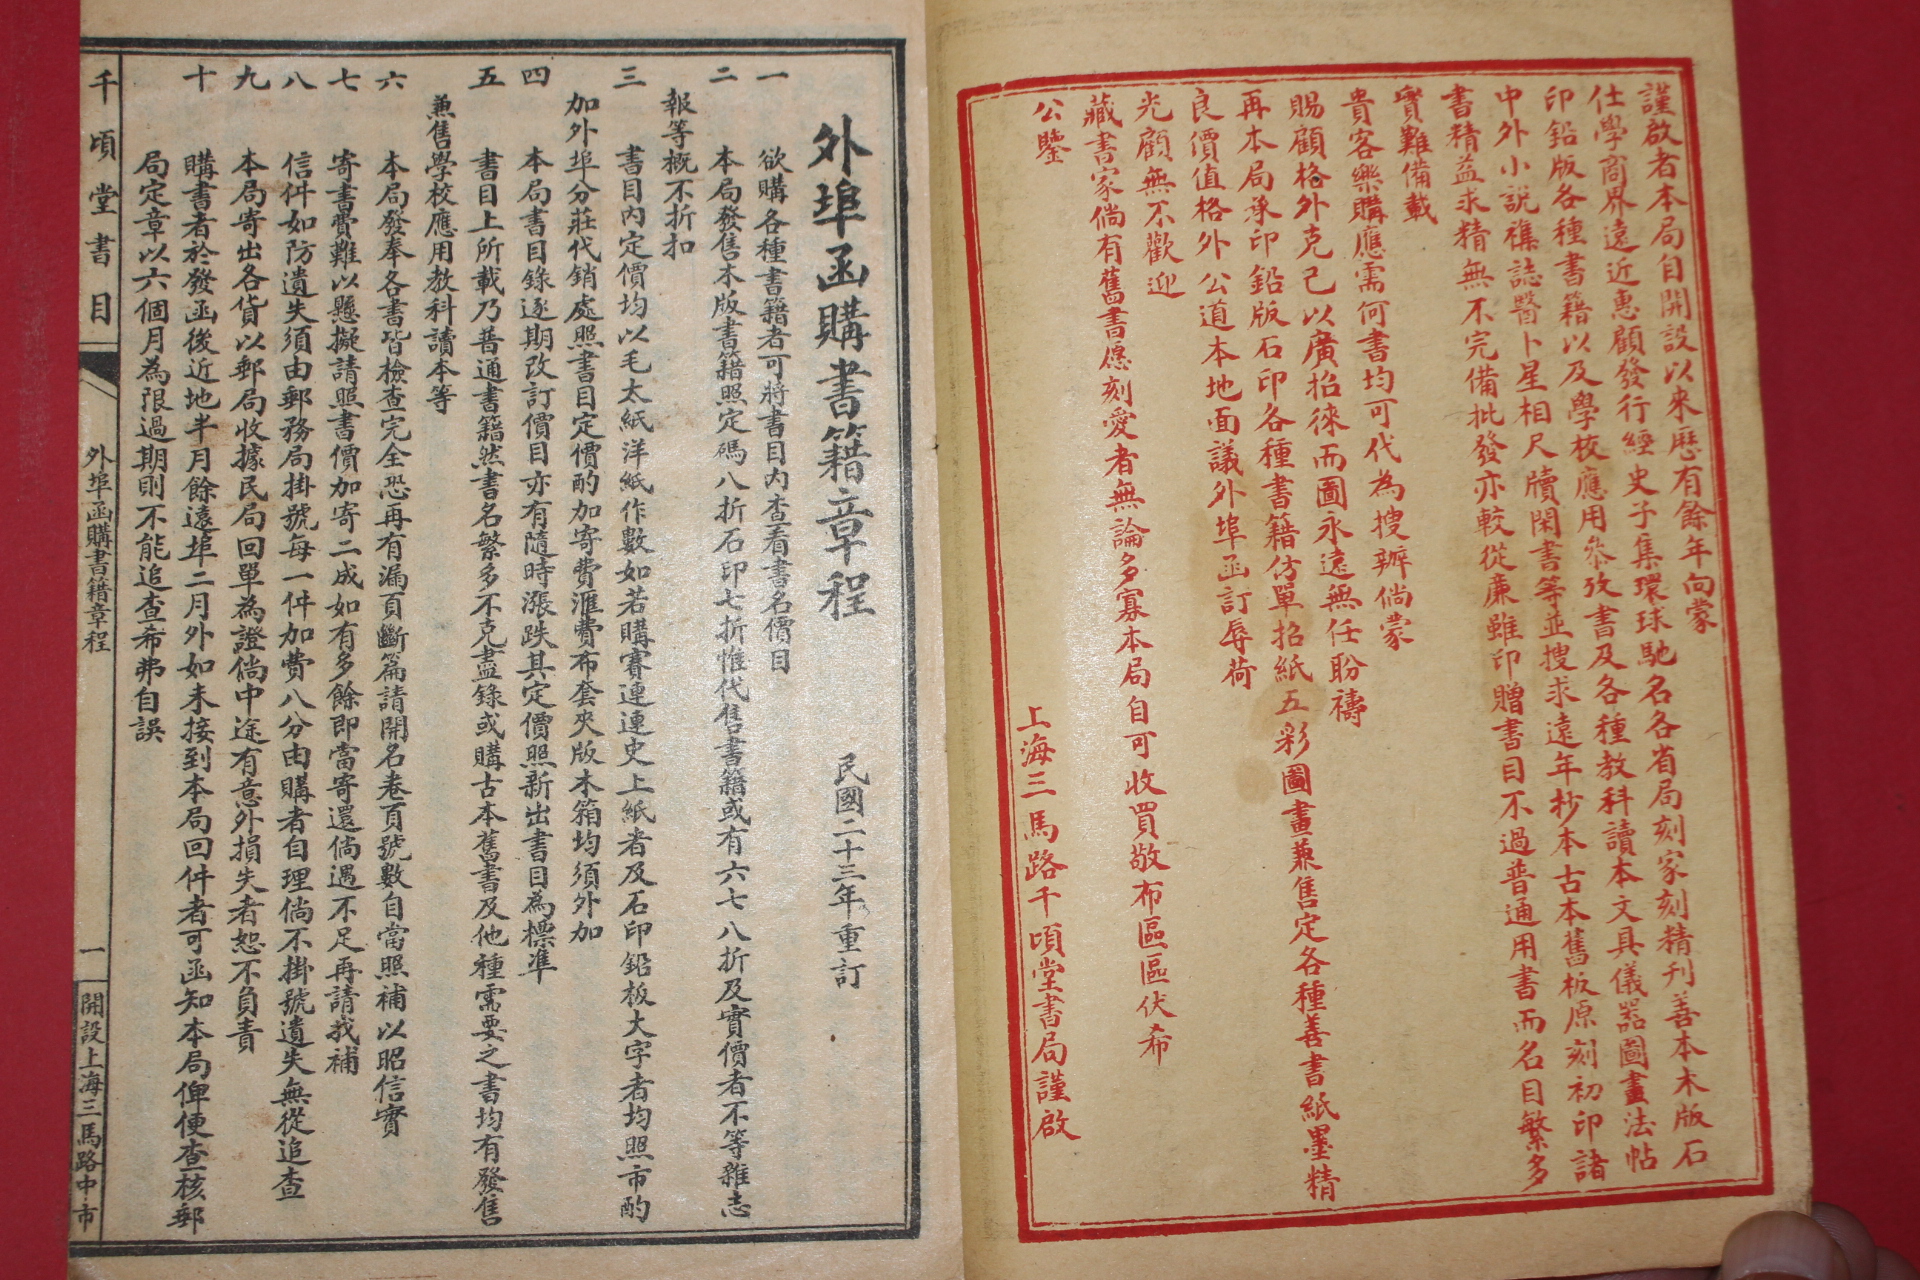 謹啟者本局自開設以來歷有餘年向蒙
仕學商界遠近惠顧發行經史子集環球馳名各省局刻家刻精刊善本木版石
印鉛版各種書籍以及學校應用參攷書及各種教科讀本文具儀器圖畫法帖
中外小說襍誌醫卜星相尺牘閑書等並搜求遠年抄本古本舊板原刻初印諸
書精益求精無不完備批發亦較從廉雖印贈書目不過普通用書而名目繁多
實難備載
貴客樂購應需何書均可代為搜辦倘蒙
賜顧格外克己以廣招徠而圖永遠無任盼禱
再本局承印鉛版石印各種書籍仿單招紙五彩圖畫兼售定各種善書紙墨精
良價值格外公道本地面議外埠函訂辱荷
光顧無不歡迎
藏書家倘有舊書愿刻愛者無論多寡本局自可收買敬布區區伏希
公鑒
上海三馬路千頃堂書局謹啟
外埠函購書籍章程
民國二十三年重訂
一 欲購各種書籍者可將書目內查看書名價目
二 本局發售木版書籍照定碼八折石印七折惟代售書籍或有六七八折及實價者不等雜志
報等概不折扣
三 書目內定價均以毛太紙洋紙作數如若購賽連連史上紙者及石印鉛板大字者均照市酌
加外埠分莊代銷處照書目定價酌加寄費滙費布套夾版木箱均須外加
四 本局書目錄逐期改訂價目亦有隨時漲跌其定價照新出書目為標準
五 書目上所載乃普通書籍然書名繁多不克盡錄或購古本舊書及他種需要之書均有發售
兼售學校應用教科讀本等
六 本局發奉各書皆檢查完全恐再有漏頁斷篇請開名卷頁號數自當照補以昭信實
七 寄書費難以懸擬請照書價加寄二成如有多餘即當寄還倘遇不足再請找補
八 信件如防遺失須由郵務局掛號每一件加費八分由購者自理倘不掛號遺失無從追查
九 本局寄出各貨以郵局收據民局回單為證倘中途有意外損失者恕不負責
十 購書者於發函後近地半月餘遠埠二月外如未接到本局回件者可函知本局俾便查核郵
局定章以六個月為限過期則不能追查希弗自誤
千頃堂書目
外埠函購書籍章程
一
開設上海三馬路中市